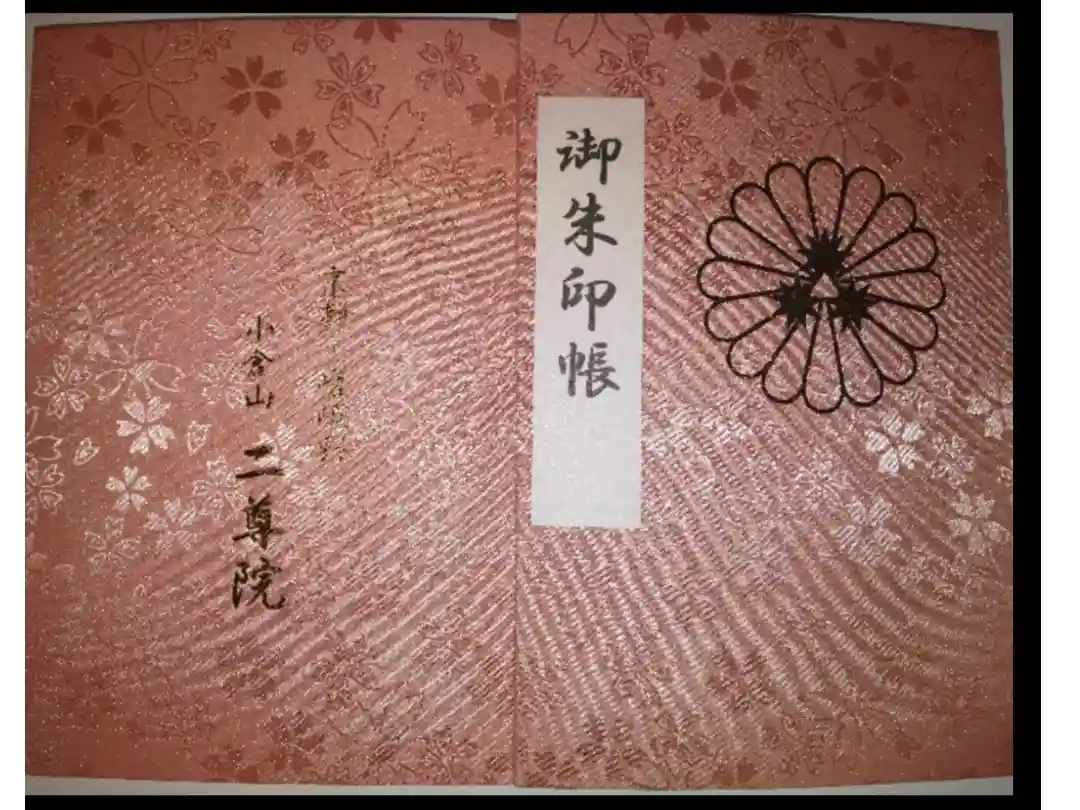 御朱印帳
京都・嵯峨野
小倉山 二尊院